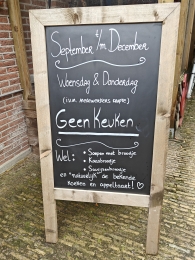 September t/m December
Woensdag & Donderdag
(i.v.m. medewerkers krapte)
Geen Keuken
Wel: * Soepen met broodje
* Kaasbroodje
* Saucijzenbroodje
en "natuurlijk" de bekende
koeken en appeltaart!